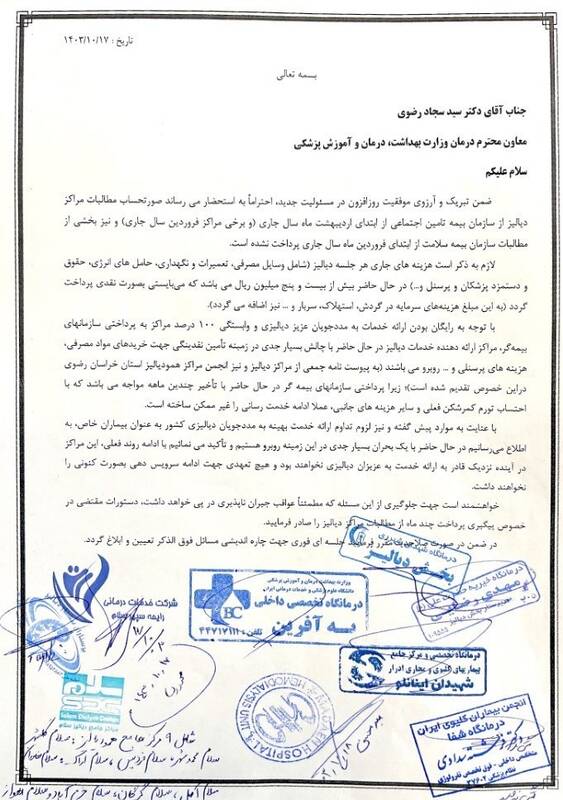 تاریخ : ۱۴۰۳/۱۰/۱۷
بسمه تعالی
جناب آقای دکتر سید سجاد رضوی
معاون محترم درمان وزارت بهداشت، درمان و آموزش پزشکی
سلام علیکم
ضمن تبریک و آرزوی موفقیت روزافزون در مسئولیت جدید، احتراماً به استحضار می رساند صورتحساب مطالبات مراکز
دیالیز از سازمان بیمه تامین اجتماعی از ابتدای اردیبهشت ماه سال جاری (و برخی مراکز فروردین سال جاری) و نیز بخشی از
مطالبات سازمان بیمه سلامت از ابتدای فروردین ماه سال جاری پرداخت نشده است.
لازم به ذکر است هزینه های جاری هر جلسه دیالیز (شامل وسایل مصرفی، تعمیرات و نگهداری، حامل های انرژی، حقوق
و دستمزد پزشکان و پرسنل و...) در حال حاضر بیش از بیست و پنج میلیون ریال می باشد که می‌بایستی بصورت نقدی پرداخت
گردد (به این مبلغ هزینه‌های سرمایه در گردش، استهلاک، سربار و ... نیز اضافه می گردد).
با توجه به رایگان بودن ارائه خدمات به مددجویان عزیز دیالیزی و وابستگی ۱۰۰ درصد مراکز به پرداختی سازمانهای
بیمه‌گر، مراکز ارائه دهنده خدمات دیالیز در حال حاضر با چالش بسیار جدی در زمینه تأمین نقدینگی جهت خریدهای مواد مصرفی،
هزینه های پرسنلی و ... روبرو می باشند (به پیوست نامه جمعی از مراکز دیالیز و نیز انجمن مراکز همودیالیز استان خراسان رضوی
دراین خصوص تقدیم شده است)؛ زیرا پرداختی سازمانهای بیمه گر در حال حاضر با تأخیر چندین ماهه مواجه می باشد که با
احتساب تورم کمرشکن فعلی و سایر هزینه های جانبی، عملا ادامه خدمت رسانی را غیر ممکن ساخته است.
با عنایت به موارد پیش گفته و نیز لزوم تداوم ارائه خدمت بهینه به مددجویان دیالیزی کشور به عنوان بیماران خاص، به
اطلاع می‌رسانیم در حال حاضر با یک بحران بسیار جدی در این زمینه روبرو هستیم و تأکید می نمائیم با ادامه روند فعلی، این مراکز
در آینده نزدیک قادر به ارائه خدمت به عزیزان دیالیزی نخواهند بود و هیچ تعهدی جهت ادامه سرویس دهی بصورت کنونی را
نخواهند داشت.
خواهشمند است جهت جلوگیری از این مسئله که مطمئناً عواقب جبران ناپذیری در پی خواهد داشت، دستورات مقتضی در
خصوص پیگیری پرداخت چند ماه از مطالبات مراکز دیالیز را صادر فرمایید.
در ضمن در صورت صلاحدید مقرر فرمایید جلسه ای فوری جهت چاره اندیشی مسائل فوق الذکر تعیین و ابلاغ گردد.
بخش دیالیز
درمانگاه خیریه
شرکت خدمات درمانی
وزارت بهداشت درمان و آموزش پزشکی
درمانگاه تخصصی داخلی
به آفرین
تلفن: ۴۴۷۱۷۱۱۱
BC
درمانگاه تخصصی و مرکز جامع
بیماریهای کلیوی و مجاری ادرار
شهیدان اینانلو
سلام
Salam Dialysis Centers
مراکز جامع دیالیز سلام
HOSPITAL
HEMODIALYSIS UNIT
انجمن بیماران کلیوی ایران
درمانگاه شفا
متخصص داخلی - فوق تخصص نفرولوژی
شامل ۹ مرکز جامع همودیالیز: سلام